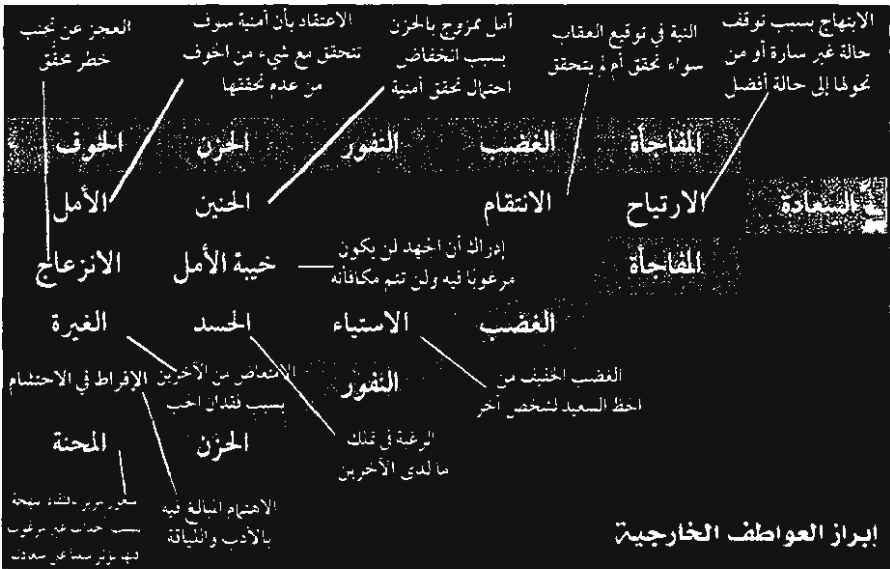 الابتهاج بسبب توقف
حالة غير سارة أو من
تحولها إلى حالة أفضل
النية في توقيع العقاب
سواء تحقق أم لم يتحقق
أمل ممزوج بالحزن
بسبب انخفاض
احتمال تحقق أمنية
الاعتقاد بأن أمنية سوف
تتحقق مع شيء من الخوف
من عدم تحققها
العجز عن تجنب
خطر محقق
المفاجأة الغضب النفور الحزن الخوف
السعادة الارتياح الانتقام الحنين الأمل
المفاجأة
إدراك أن الجهد لن يكون
مرغوبًا فيه ولن تتم مكافأته
خيبة الأمل الانزعاج
الغضب الاستياء الحسد الغيرة
الغضب الخفيف من
الحظ السعيد لشخص آخر
النفور
الامتعاض من الآخرين
بسبب فقدان الحب
الإفراط في الاحتشام
الرغبة في تملك
ما لدى الآخرين
الحزن المحنة
الاهتمام المبالغ فيه
بالأدب واللياقة
بسبب أحداث غير مرغوب
إبراز العواطف الخارجية